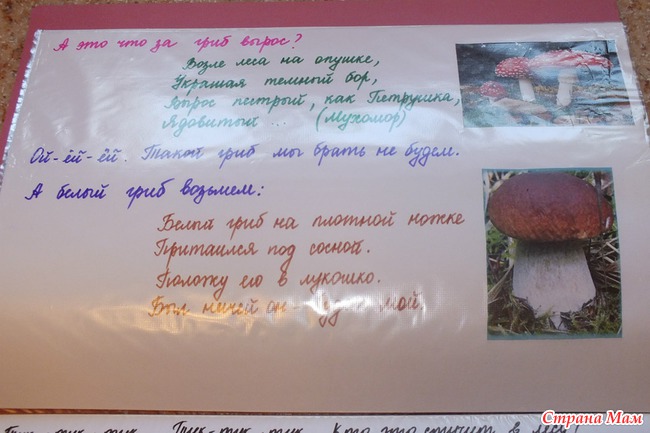 А это что за гриб вырос?
Возле леса на опушке,
Украшая темный бор,
Вырос пестрый, как Петрушка,
Ядовитый ... (Мухомор)
Ой-ёй-ёй. Такой гриб мы брать не будем.
А белый гриб возьмем:
Белый гриб на плотной ножке
Притаился под сосной.
Положу его в лукошко.
Был ничей он - мой.
Тук-тук-тук. Кто это стучит в лесу?
Страна Мам